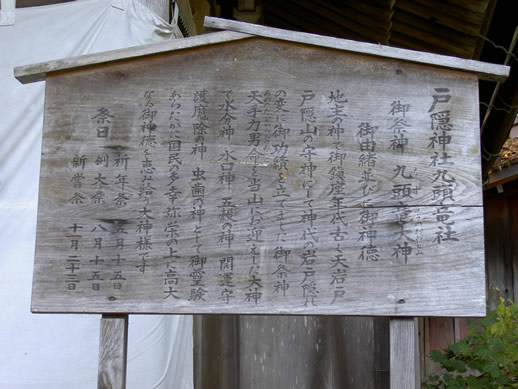 戸隠神社九頭龍社
御祭神 九頭龍大神
御由緒並びに御神徳
地主の神で御鎮座年代古く天岩戸
戸隠山の守神にして神代の岩戸隠れ
の変に御功績を立てましし御祭神
天手力男命を当山にお迎えした大神
で水分神 水口神 五穀の神 開運守
護魔除神 虫歯の神として御霊験
あらたかに国民の幸弥栄の上に高大
なる御神徳を恵み給う大神様です
祭日 祈年祭 月十五日
例大祭 八月十五日
新嘗祭 十一月二十三日